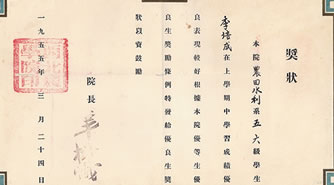 獎狀
本院農田水利系五六級學生
李培成在上學期中學習成績優
良表現較好根據本院優等生優
良生獎勵條例特發給優良生獎
狀以資鼓勵
院長
一九五五年三月二十四日